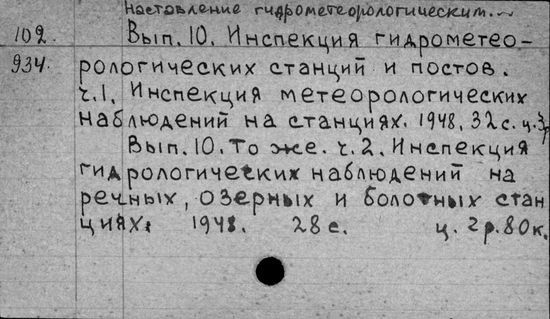 наставление гидрометеорологическим.
102. Вып. 10. Инспекция гидрометео-
934. рологических станций и постов.
ч.1. Инспекция метеорологических
наблюдений на станциях. 1948. 32 с. ц. 3р
Вып. 10. То же. ч. 2. Инспекция
гидрологических наблюдений на
речных, озерных и болотных стан
циях. 1948. 28 с. ц. 2 р. 80 к.